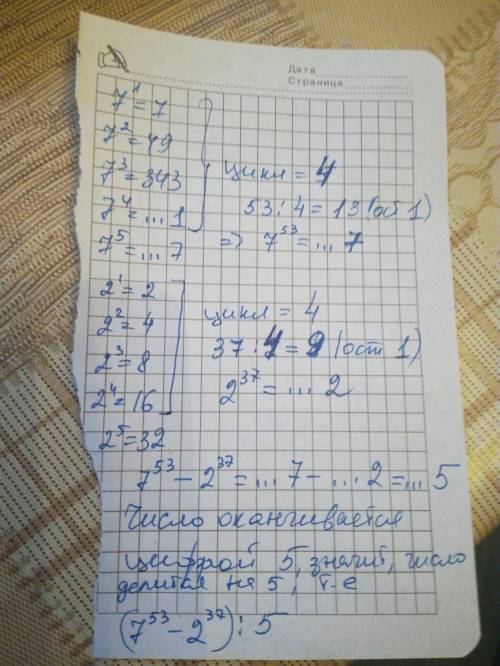 Дата
Страница
7¹ = 7
7² = 49
7³ = 343
7⁴ = ... 1
7⁵ = ... 7
цикл = 4
53 : 4 = 13 (ост 1)
=> 7⁵³ = ... 7
2¹ = 2
2² = 4
2³ = 8
2⁴ = 16
2⁵ = 32
цикл = 4
37 : 4 = 9 (ост 1)
2³⁷ = ... 2
7⁵³ - 2³⁷ = ... 7 - ... 2 = ... 5
Число оканчивается
цифрой 5, значит, число
делится на 5, т-е
(7⁵³ - 2³⁷) ⋮ 5